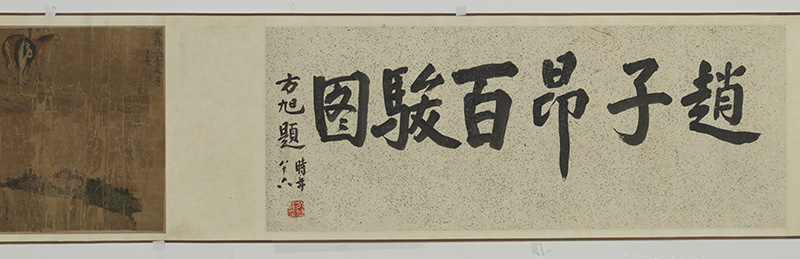 趙子昂百駿图
方旭題
時年
八十六